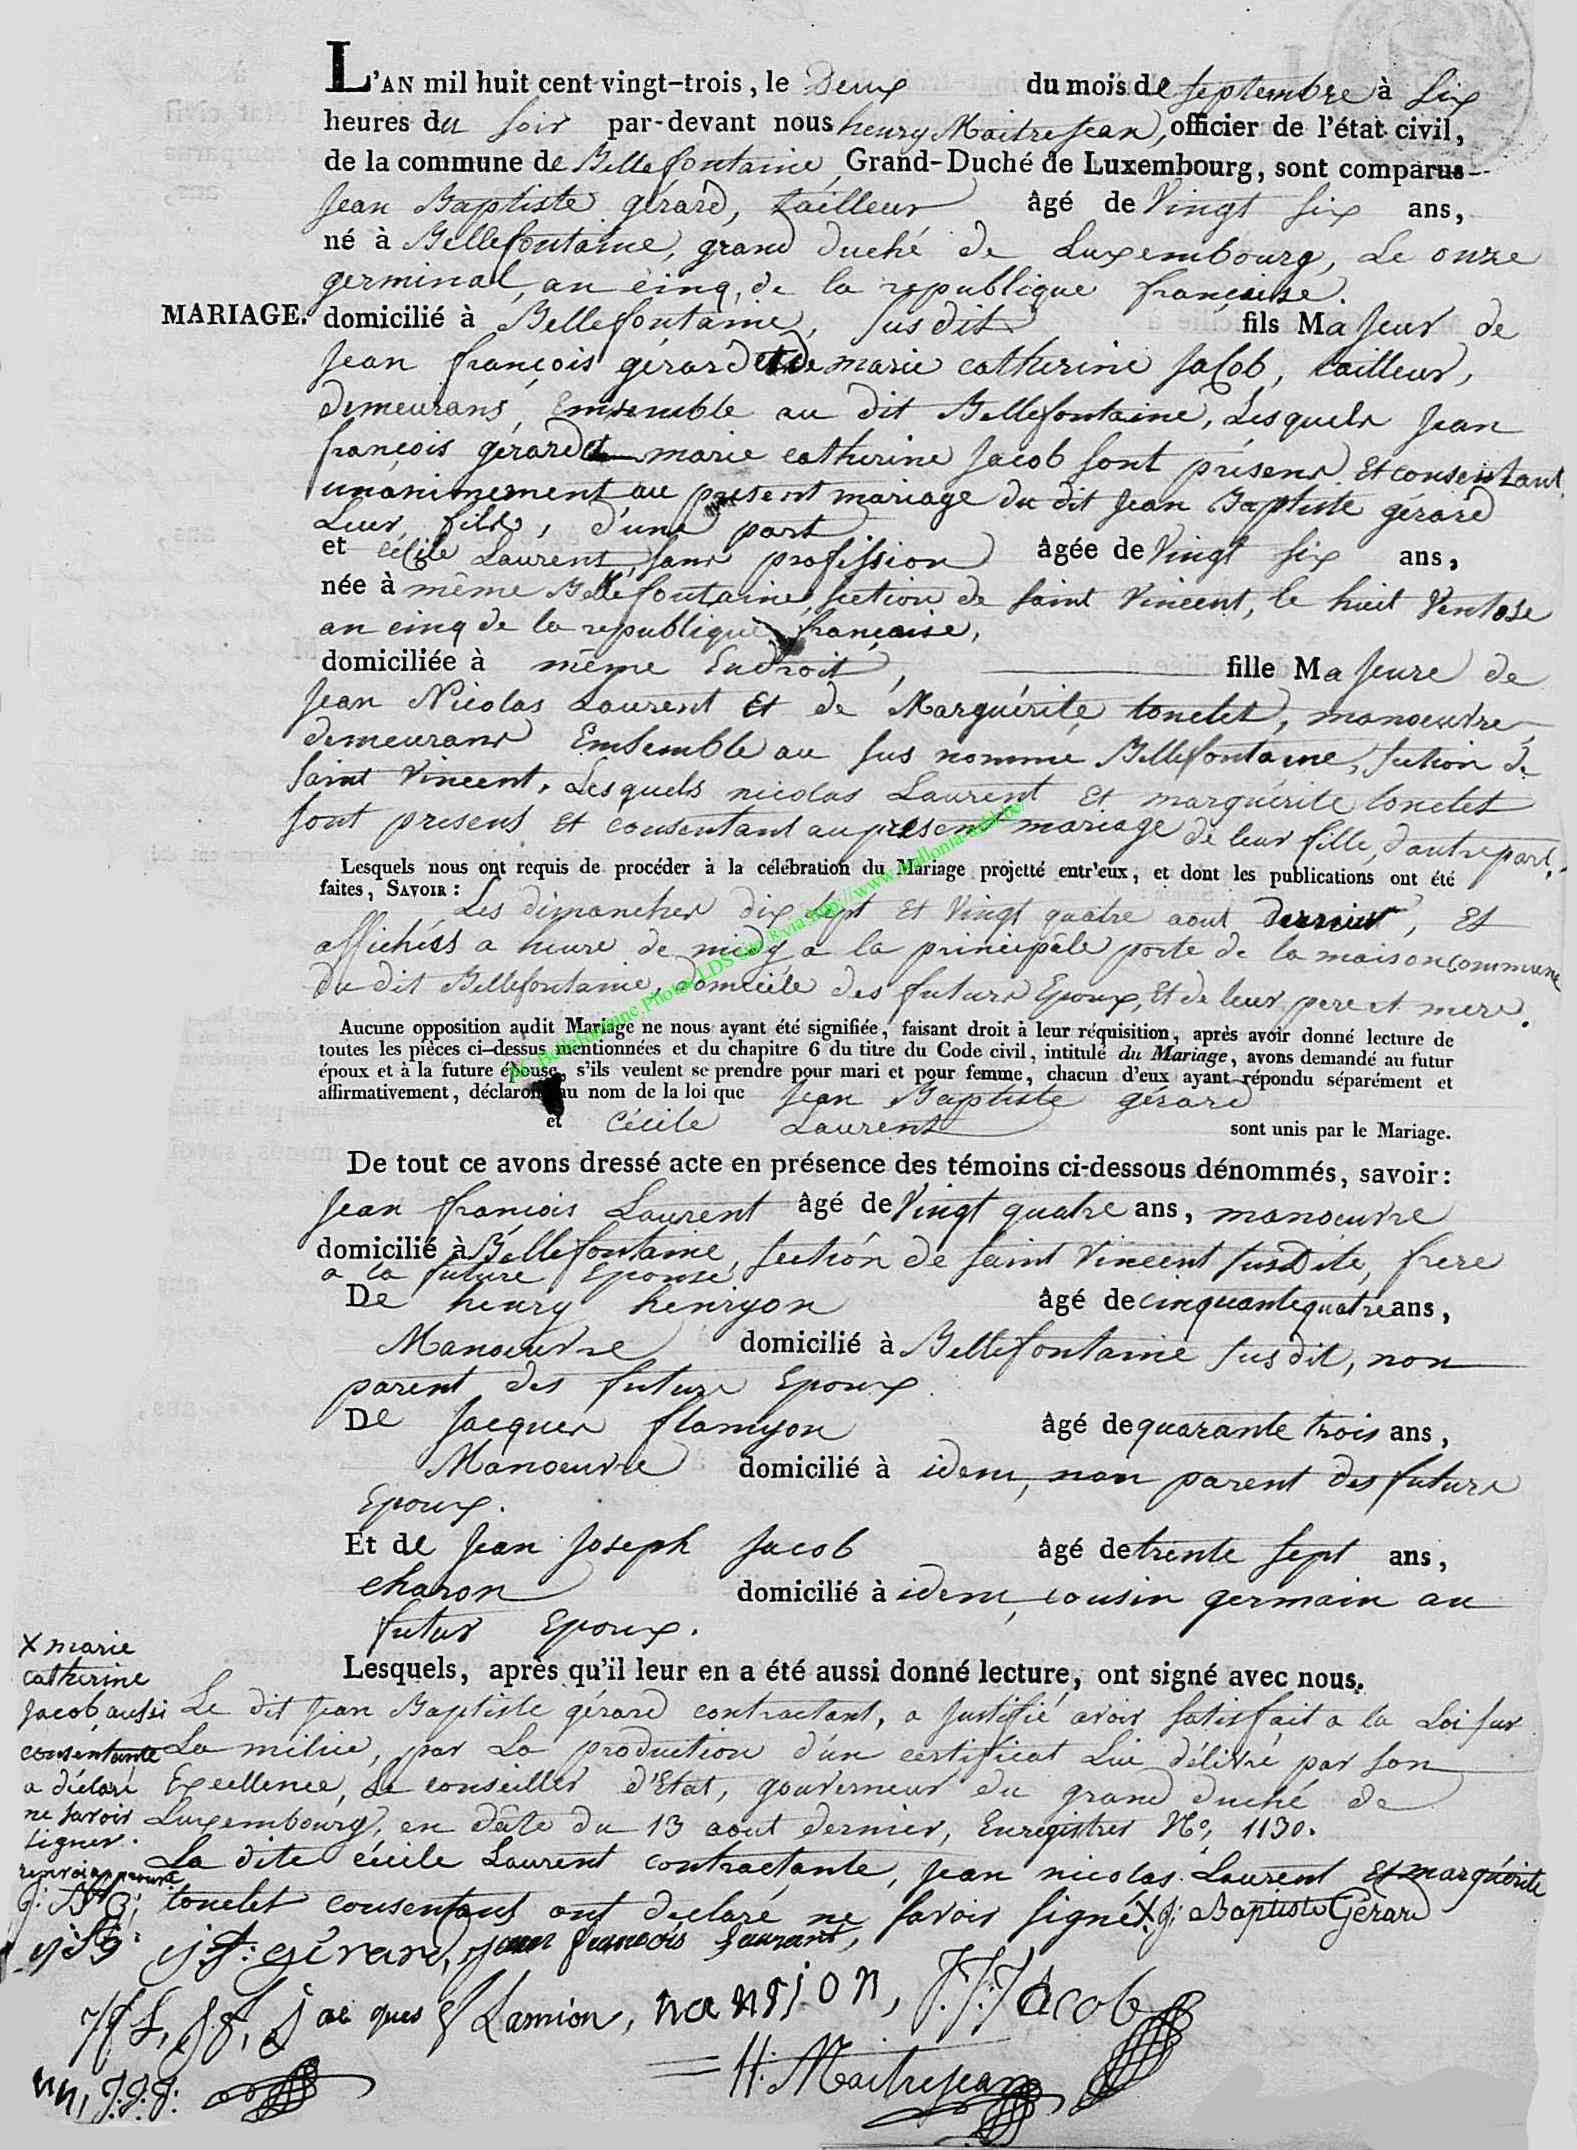 L'AN mil huit cent vingt-trois, le Deux du mois de septembre à six
heures du soir par-devant nous henry Maitrejean, officier de l'état civil,
de la commune de Bellefontaine, Grand-Duché de Luxembourg, sont comparus
Jean Baptiste gérard, tailleur âgé de Vingt six ans,
né à Bellefontaine, grand duché de Luxembourg, Le onze
germinal, an cinq, de la republique française.
MARIAGE. domicilié à Bellefontaine, susdit fils Majeur de
Jean françois gérard et de marie catherine Jacob, tailleur,
demeurans Emsemble au dit Bellefontaine, Lesquels Jean
françois gérard et marie catherine Jacob sont présens et consentant
unanimement au present mariage du dit Jean Baptiste gérard
Leur fils, d'une part
et cécile Laurent, sans profession âgée de Vingt six ans,
née à même Bellefontaine, section de saint Vincent, le huit Ventose
an cinq de la republique française,
domiciliée à même Endroit, fille Majeure de
Jean Nicolas Laurent et de Marguérite tonclet, manoeuvre,
demeurans Emsemble au sus nommé Bellefontaine, section de
saint Vincent, Lesquels nicolas Laurent et marguérite tonclet
sont presens et consentant au present mariage de leur fille, d'autre part.
Lesquels nous ont requis de procéder à la célébration du Mariage projetté entr'eux, et dont les publications ont été
faites, SAVOIR :
Les dimanches dix sept et Vingt quatre aout dernier, et
affichées a heure de midy a la principâle porte de la maison commune
du dit Bellefontaine, domicile des futurs Epoux, et de leur pere et mere.
Aucune opposition audit Mariage ne nous ayant été signifiée, faisant droit à leur réquisition, après avoir donné lecture de
toutes les pièces ci-dessus mentionnées et du chapitre 6 du titre du Code civil, intitulé du Mariage, avons demandé au futur
époux et à la future épouse, s'ils veulent se prendre pour mari et pour femme, chacun d'eux ayant répondu séparément et
affirmativement, déclarons au nom de la loi que Jean Baptiste gérard
et Cécile Laurent sont unis par le Mariage.
De tout ce avons dressé acte en présence des témoins ci-dessous dénommés, savoir:
Jean françois Laurent âgé de Vingt quatre ans, manoeuvre
domicilié à Bellefontaine, section de saint Vincent susdite, frere
a la future Epouse
De henry henryon âgé de cinquante quatre ans,
Manoeuvre domicilié à Bellefontaine susdit, non
parent des futurs Epoux
De Jacques flamyon âgé de quarante trois ans,
Manoeuvre domicilié à idem, non parent des futurs
Epoux.
Et de Jean Joseph Jacob âgé de trente sept ans,
charon domicilié à idem, cousin germain au
futur Epoux.
Lesquels, après qu'il leur en a été aussi donné lecture, ont signé avec nous.
Le dit Jean Baptiste gérard contractant, a Justifié avoir satisfait a la Loi sur
La milice, par La production d'un certificat Lui délivré par son
Excellence, Le conseiller d'Etat, gouverneur du grand duché de
Luxembourg, en date du 13 aout dernier, Enregistrer No, 1130.
La dite cécile Laurent contractante, Jean nicolas Laurent et marguérite
tonclet consentans ont declaré ne savoir signé X J: Baptiste Gérard
X marie
catherine
Jacob aussi
consentante
a déclaré
ne savoir
signer.
renvoi approuvé
j: f: gérard, jean françois Laurant,
Jacques flamion, hansion, J: J: Jacob
H: Maitrejean
AC Bellefontaine Photos LDS Site ® via http://www.wallonia-asbl.be/